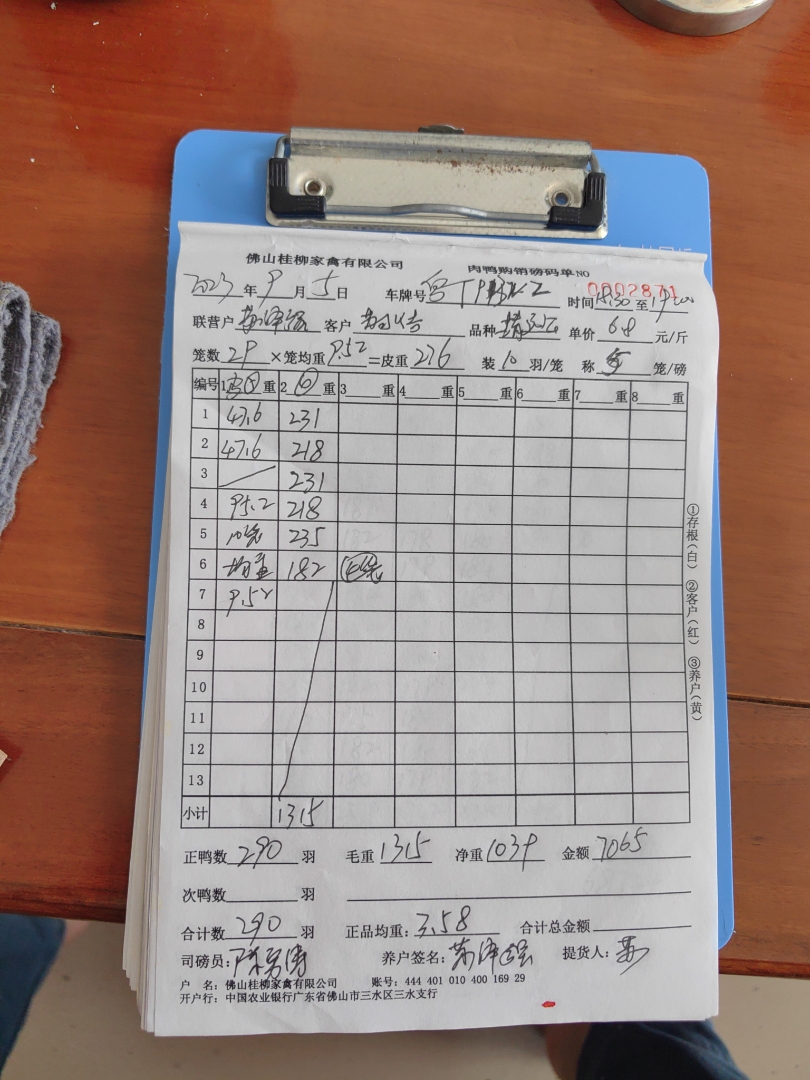 佛山桂柳家禽有限公司 肉鸭购销磅码单 NO 0002871
2023 年 9 月 5 日 车牌号 时间 18:30 至 19:00
联营户 客户 品种 单价 6.8 元/斤
笼数 29 ×笼均重 9.52 =皮重 276 装 10 羽/笼 称 5 笼/磅
编号 1 重 2 ⑩ 重 3 重 4 重 5 重 6 重 7 重 8 重
1 47.6 231
2 47.6 218
3 231
4 95.2 218
5 10笼 235
6 均重 182
7 9.52
8
9
10
11
12
13
小计 1315
正鸭数 290 羽 毛重 1315 净重 1039 金额 7065
次鸭数 羽
合计数 290 羽 正品均重: 3.58 合计总金额
司磅员: 养户签名: 提货人:
户 名: 佛山桂柳家禽有限公司 账号: 444 401 010 400 169 29
开户行: 中国农业银行广东省佛山市三水区三水支行
①存根(白) ②客户(红) ③养户(黄)